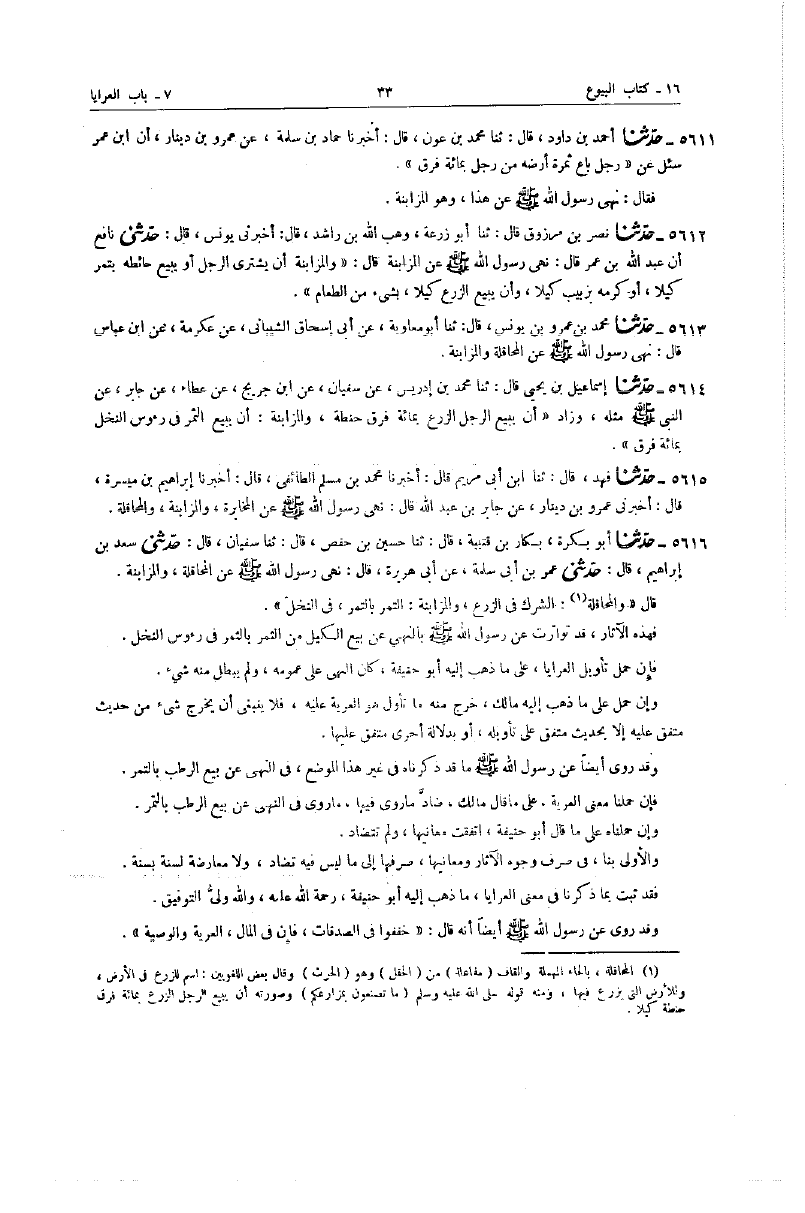 ١٦ - كتاب البيوع ٣٣ ٧ - باب العرايا
٥٦١١ - حدثنا أحمد بن داود ، قال : ثنا محمد بن عون ، قال : أخبرنا حماد بن سلمة ، عن عمرو بن دينار ، أن ابن عمر
سئل عن « رجل باع ثمرة أرضه من رجل بمائة فرق » .
فقال : نهى رسول الله ﷺ عن هذا ، وهو المزابنة .
٥٦١٢ - حدثنا نصر بن مرزوق قال : ثنا أبو زرعة ، وهب الله بن راشد ، قال: أخبرنى يونس ، قال : حدثنى نافع
أن عبد الله بن عمر قال : نهى رسول الله ﷺ عن المزابنة قال : « والمزابنة أن يشترى الرجل أو يبيع حائطه بتمر
كيلا ، أو كرمه بزبيب كيلا ، وأن يبيع الزرع كيلا ، بشىء من الطعام » .
٥٦١٣ - حدثنا محمد بن عمرو بن يونس ، قال: ثنا أبو معاوية ، عن أبى إسحاق الشيبانى ، عن عكرمة ، عن ابن عباس
قال : نهى رسول الله ﷺ عن المحاقلة والمزابنة .
٥٦١٤ - حدثنا إسماعيل بن يحيى قال : ثنا محمد بن إدريس ، عن سفيان ، عن ابن جريج ، عن عطاء ، عن جابر ، عن
النبى ﷺ مثله ، وزاد « أن يبيع الرجل الزرع بمائة فرق حنطة ، والمزابنة : أن يبيع الثمر فى رءوس النخل
بمائة فرق » .
٥٦١٥ - حدثنا فهد ، قال : ثنا ابن أبى مريم قال : أخبرنا محمد بن مسلم الطائفى ، قال : أخبرنا إبراهيم بن ميسرة ،
قال : أخبرنى عمرو بن دينار ، عن جابر بن عبد الله قال : نهى رسول الله ﷺ عن المخابرة ، والمزابنة ، والمحاقلة .
٥٦١٦ - حدثنا أبو بكرة ، بكار بن قتيبة ، قال : ثنا حسين بن حفص ، قال : ثنا سفيان ، قال : حدثنى سعد بن
إبراهيم ، قال : حدثنى عمر بن أبى سلمة ، عن أبى هريرة ، قال : نهى رسول الله ﷺ عن المحاقلة ، والمزابنة .
قال « والمحاقلة(١) : الشرك فى الزرع ، والمزابنة : التمر بالتمر ، فى النخل » .
فهذه الآثار ، قد تواترت عن رسول الله ﷺ بالنهى عن بيع الكيل من التمر بالثمر فى رءوس النخل .
فإن حمل تأويل العرايا ، على ما ذهب إليه أبو حنيفة ، كان النهى على عمومه ، ولم يبطل منه شىء .
وإن حمل على ما ذهب إليه مالك ، خرج منه ما تأول هو العرية عليه ، فلا ينبغى أن يخرج شىء من حديث
متفق عليه إلا بحديث متفق على تأويله ، أو بدلالة أخرى متفق عليها .
وقد روى أيضاً عن رسول الله ﷺ ما قد ذكرناه فى غير هذا الموضع ، فى النهى عن بيع الرطب بالتمر .
فإن حملنا معنى العرية . على ما قال مالك ، ضادَّ ما روى فيها ، ما روى فى النهى عن بيع الرطب بالتمر .
وإن حملناه على ما قال أبو حنيفة ، اتفقت معانيها ، ولم تتضاد .
والأولى بنا ، فى صرف وجوه الآثار ومعانيها ، صرفها إلى ما ليس فيه تضاد ، ولا معارضة لسنة بسنة .
فقد ثبت بما ذكرنا فى معنى العرايا ، ما ذهب إليه أبو حنيفة ، رحمة الله عليه ، والله ولىُّ التوفيق .
وقد روى عن رسول الله ﷺ أيضاً أنه قال : « خففوا فى الصدقات ، فإن فى المال ، العرية والوصية » .
(١) المحاقلة ، بالحاء المهملة والقاف ( مفاعلة ) من ( الحقل ) وهو ( الحرث ) وقال بعض اللغويين : اسم للزرع فى الأرض ،
وللأرض التى يزرع فيها ، ومنه قوله صلى الله عليه وسلم ( ما تصنعون بمزارعكم ) وصورته أن يبيع الرجل الزرع بمائة فرق
حنطة كيلا .